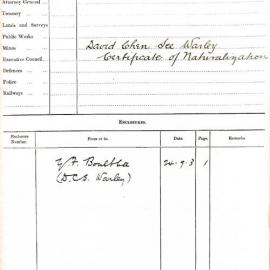 Attorney General
Treasury
Lands and Surveys
Public Works
Mines
Executive Council
Defence
Police
Railways
David Chen See Warley
Certificate of Naturalization
ENCLOSURES.
Enclosure Number.
From or to.
Date.
Page.
Remarks.
Boultba 24.9.3 1
(D.C.S. Warley)